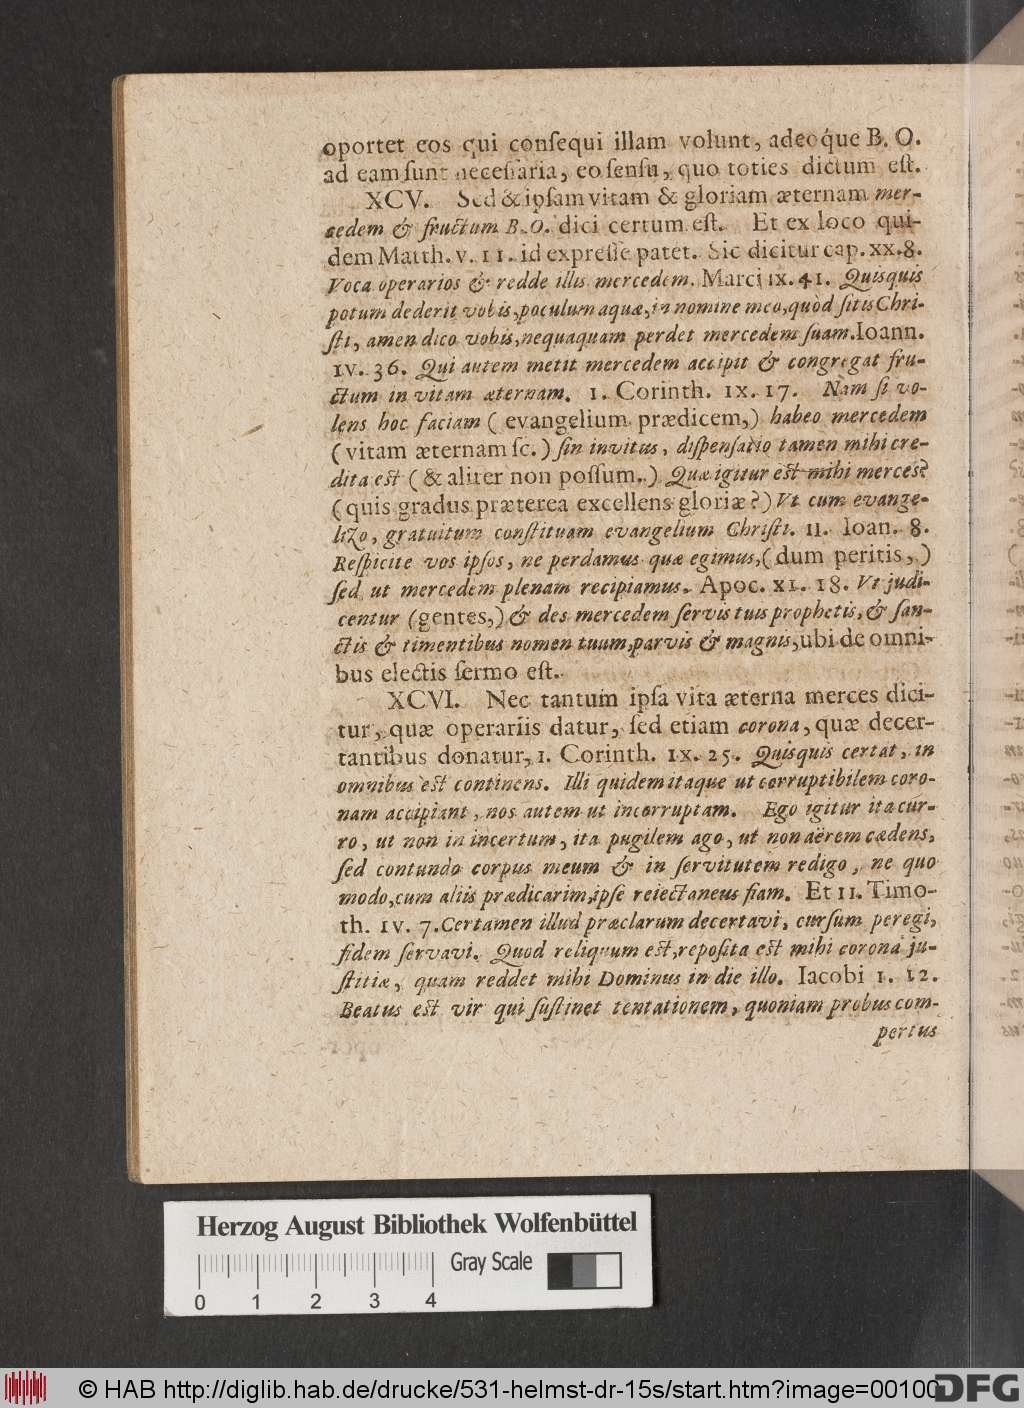 oportet eos qui conſequi illam volunt, adeoq́ue B. O.
ad eam ſunt neceſſaria, eo ſenſu, quo toties dictum eſt.
XCV. Sed & ipſam vitam & gloriam æternam mer-
cedem & fructum B. O. dici certum eſt. Et ex loco qui-
dem Matth. v. 11. id expreſſe patet. Sic dicitur cap. xx. 8.
Voca operarios & redde illis mercedem. Marci ix. 41. Quisquis
potum dederit vobis, poculum aquæ, in nomine meo, quòd ſitis Chri-
ſti, amen dico vobis, nequaquam perdet mercedem ſuam. Ioann.
iv. 36. Qui autem metit mercedem accipit & congregat fru-
ctum in vitam æternam. 1. Corinth. ix. 17. Nam ſi vo-
lens hoc faciam ( evangelium prædicem, ) habeo mercedem
( vitam æternam ſc. ) ſin invitus, diſpenſatio tamen mihi cre-
dita eſt ( & aliter non poſſum. ) Quæ igitur eſt mihi merces?
( quis gradus præterea excellens gloriæ? ) Vt cum evange-
lizo, gratuitum conſtituam evangelium Chriſti. 11. Ioan. 8.
Reſpicite vos ipſos, ne perdamus quæ egimus, ( dum peritis, )
ſed ut mercedem plenam recipiamus. Apoc. xi. 18. Vt judi-
centur (gentes,) & des mercedem ſervis tuis prophetis, & ſan-
ctis & timentibus nomen tuum, parvis & magnis, ubi de omni-
bus electis ſermo eſt.
XCVI. Nec tantum ipſa vita æterna merces dici-
tur, quæ operariis datur, ſed etiam corona, quæ decer-
tantibus donatur, 1. Corinth. ix. 25. Quisquis certat, in
omnibus eſt continens. Illi quidem itaque ut corruptibilem coro-
nam accipiant, nos autem ut incorruptam. Ego igitur ita cur-
ro, ut non in incertum, ita pugilem ago, ut non aërem cædens,
ſed contundo corpus meum & in ſervitutem redigo, ne quo
modo, cum aliis prædicarim, ipſe reiectaneus fiam. Et 11. Timo-
th. iv. 7. Certamen illud præclarum decertavi, curſum peregi,
fidem ſervavi. Quod reliquum eſt, repoſita eſt mihi corona ju-
ſtitiæ, quam reddet mihi Dominus in die illo. Iacobi 1. 12.
Beatus eſt vir qui ſuſtinet tentationem, quoniam probus com-
pertus
Herzog August Bibliothek Wolfenbüttel
Gray Scale
0 1 2 3 4
© HAB http://diglib.hab.de/drucke/531-helmst-dr-15s/start.htm?image=00100
DFG